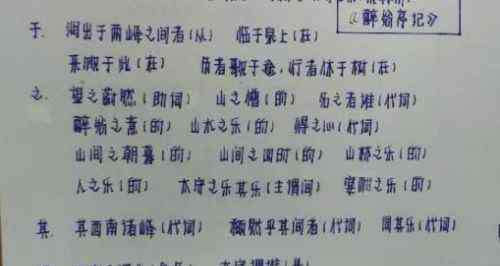 《醉翁亭记》
于. 泻出于两峰之间者(从) 临于泉上(在)
来饮于此(在) 负者歌于途,行者休于树(在)
之. 望之蔚然(助词) 山之僧(的) 名之者谁(代词)
醉翁之意(的) 山水之乐(的) 得之心(代词)
山间之朝暮(的) 山间之四时(的) 山林之乐(的)
人之乐(的) 太守之乐其乐(主谓间) 宴酣之乐(的)
其. 其西南诸峰(代词) 颓然乎其间者(代词) 同其乐(代词)